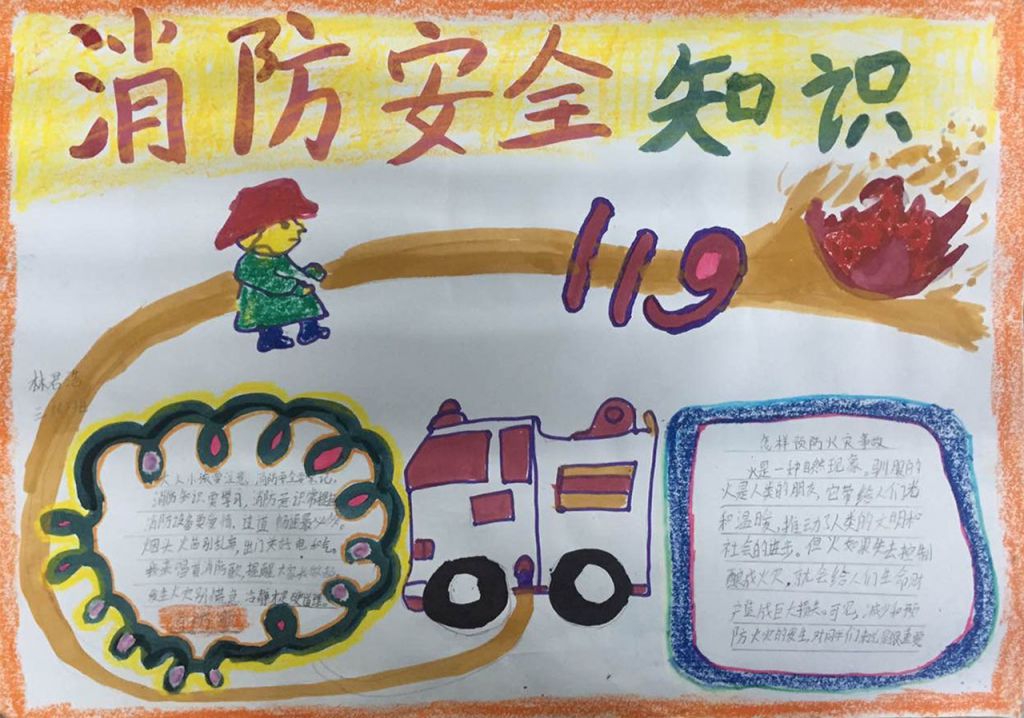 消防安全知识
119
林君
三
大人小孩要注意,消防安全要牢记。
消防知识要学习,消防意识常提
消防设备要爱惜,过道畅通最必须。
烟头火苗别乱弃,出门关好电和气。
我来唱首消防歌,提醒大家
发生火灾别慌急,冷静才是硬道理。
消防歌
怎样预防火灾事故
火是一种自然现象,驯服的
火是人类的朋友,它带给人们光
和温暖,推动了人类的文明和
社会的进步。但火如果失去控制
酿成火灾,就会给人们生命财
产造成巨大损失。可见,减少和预
防火灾的发生,对同学们来说
重要